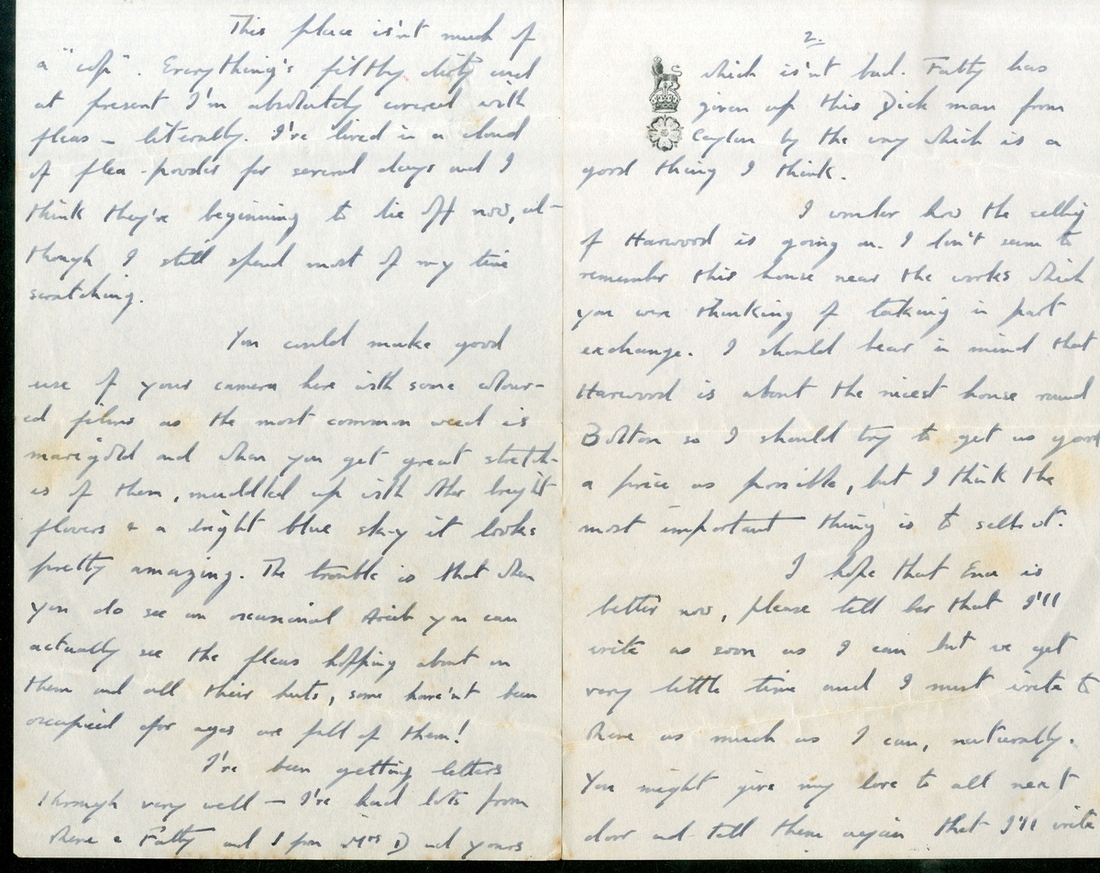 This place isn't much of
a "cop". Everything's filthy dirty and
at present I'm absolutely covered with
fleas – literally. I've lived in a cloud
of flea-powder for several days and I
think they're beginning to lie off now, al-
though I still spend most of my time
scratching.
You could make good
use of your camera here with some colour-
ed films as the most common weed is
marigold and when you get great stretch-
es of them, muddled up with other bright
flowers & a bright blue sky it looks
pretty amazing. The trouble is that when
you do see an occasional Arab you can
actually see the fleas hopping about on
them and all their huts, some haven't been
occupied for ages are full of them!
I've been getting letters
through very well – I've had lots from
& Fatty and 1 from Mrs D and yours
2.
which isn't bad. Fatty has
given up this Dick man from
Ceylon by the way which is a
good thing I think.
I wonder how the selling
of Harwood is going on. I don't seem to
remember this house near the works which
you were thinking of taking in part
exchange. I should bear in mind that
Harwood is about the nicest house round
Bolton so I should try to get as good
a price as possible, but I think the
most important thing is to sell it.
I hope that Ena is
better now, please tell her that I'll
write as soon as I can but we get
very little time and I must write to
as much as I can, naturally.
You might give my love to all next
door and tell them again that I'll write